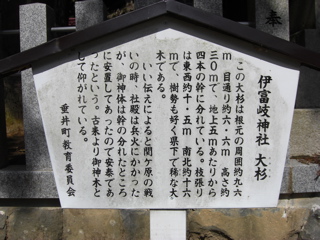 伊富岐神社 大杉
この大杉は根元の周囲約九六
m 目通り約六・六m 高さ約
三〇mで、地上五mあたりから
四本の幹に分れている。枝張り
は東西約十・五m 南北約十六
mで、樹勢も好く県下で稀な大
木である。
いい伝えによると関ケ原の戦
いの時、社殿は兵火にかかった
が、御神体は幹の分れたところ
に安置してあったので安泰であ
ったという。古来より御神木と
して仰がれている。
垂井町教育委員会
奉